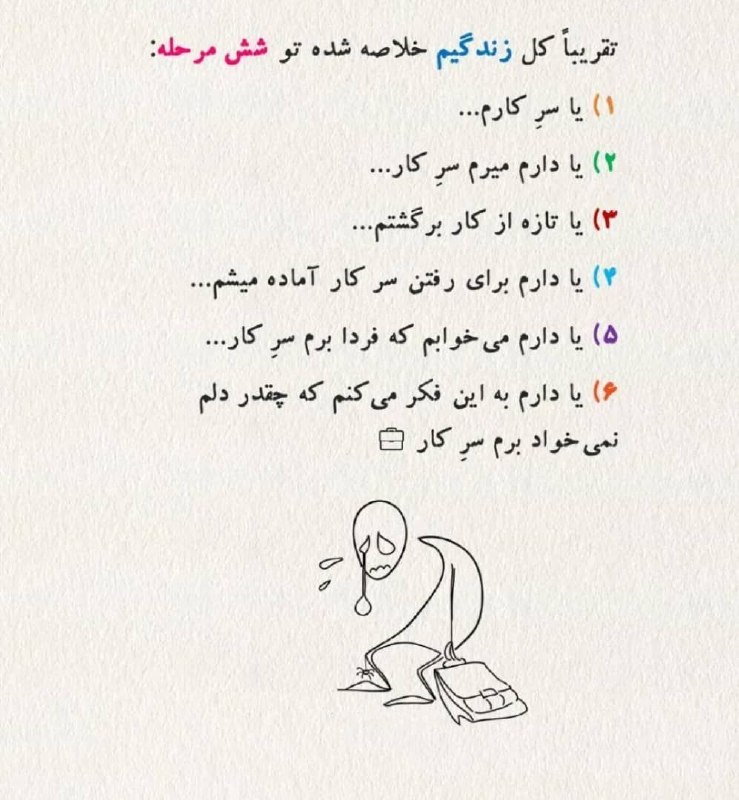 تقریباً کل زندگیم خلاصه شده تو شش مرحله:
۱) یا سرِ کارم...
۲) یا دارم میرم سرِ کار...
۳) یا تازه از کار برگشتم...
۴) یا دارم برای رفتن سر کار آماده میشم...
۵) یا دارم می‌خوابم که فردا برم سرِ کار...
۶) یا دارم به این فکر می‌کنم که چقدر دلم
نمی‌خواد برم سرِ کار